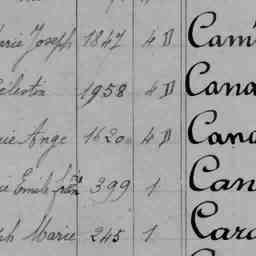 arie Joseph 1847 4 D Cam
Célestin 1958 4 D Cana
rie Ange 1620 4 D Cano
ie Emile 399 1 Can
ph Marie 245 1 Card